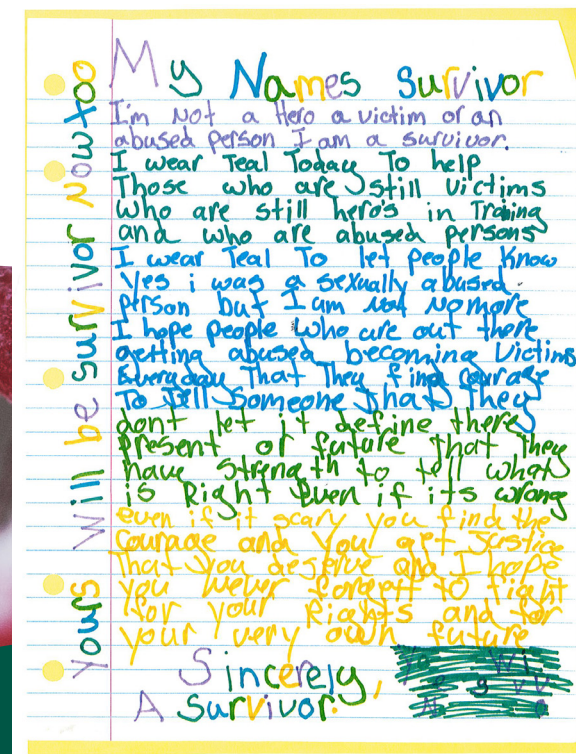 My Names Survivor
I'm Not a Hero a victim or an
abused person I am a survivor.
I wear Teal Today To help
Those who are still victims
who are still hero's in Training
and who are abused persons
I wear Teal To let people Know
Yes i was a sexually abused
person but I am not nomore
I hope people who are out there
getting abused becoming Victims
Everyday That They find courage
To Tell Someone That They
dont let it define there
present or future that they
have strength to tell what
is Right Even if its wrong
even if it scary you find the
courage and you get Justice
That you deserve and I hope
you never forgett to fight
for your Rights and for
your very own future
Sincerely,
A Survivor.
Yours will be survivor Now too